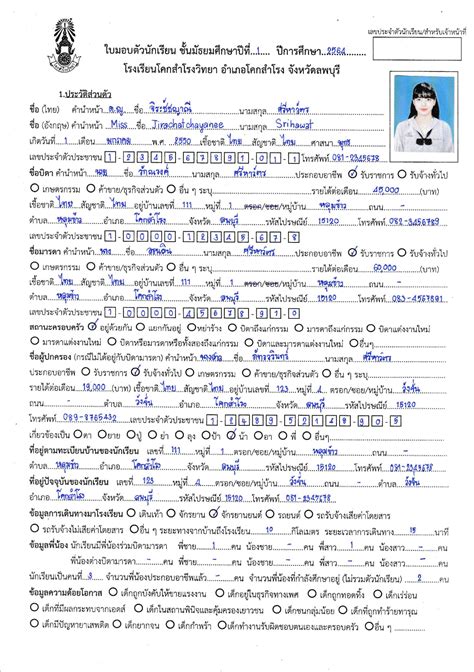 เลขประจำตัวนักเรียน/สำหรับเจ้าหน้าที่
ใบมอบตัวนักเรียน ชั้นมัธยมศึกษาปีที่ 1 ปีการศึกษา 2564
โรงเรียนโคกสำโรงวิทยา อำเภอโคกสำโรง จังหวัดลพบุรี
1.ประวัติส่วนตัว
ชื่อ (ไทย) คำนำหน้า ด.ญ. ชื่อ จิรัชชญาณี นามสกุล ศรีหาวัตร
ชื่อ (อังกฤษ) คำนำหน้า Miss ชื่อ Jirachatchayanee นามสกุล Srihawat
เกิดวันที่ 1 เดือน มกราคม พ.ศ. 2550 เชื้อชาติ ไทย สัญชาติ ไทย ศาสนา พุทธ
เลขประจำตัวประชาชน 1 2 3 4 5 6 7 8 9 1 0 1 1 โทรศัพท์ 081-2345678
ชื่อบิดา คำนำหน้า นาย ชื่อ นามสกุล ศรีหาวัตร ประกอบอาชีพ รับราชการ รับจ้างทั่วไป
เกษตรกรรม ค้าขาย/ธุรกิจส่วนตัว อื่น ๆ ระบุ รายได้ต่อเดือน 45,000 (บาท)
เชื้อชาติ ไทย สัญชาติ ไทย อยู่บ้านเลขที่ 111 หมู่ที่ 1 ตรอก/ซอย/หมู่บ้าน หลุมข้าว ถนน
ตำบล หลุมข้าว อำเภอ โคกสำโรง จังหวัด ลพบุรี รหัสไปรษณีย์ 15120 โทรศัพท์ 082-3456789
เลขประจำตัวประชาชน
ชื่อมารดา คำนำหน้า นาง ชื่อ นามสกุล ศรีหาวัตร ประกอบอาชีพ รับราชการ รับจ้างทั่วไป
เกษตรกรรม ค้าขาย/ธุรกิจส่วนตัว อื่น ๆ ระบุ รายได้ต่อเดือน 60,000 (บาท)
เชื้อชาติ ไทย สัญชาติ ไทย อยู่บ้านเลขที่ 111 หมู่ที่ 1 ตรอก/ซอย/หมู่บ้าน หลุมข้าว ถนน
ตำบล หลุมข้าว อำเภอ โคกสำโรง จังหวัด ลพบุรี รหัสไปรษณีย์ 15120 โทรศัพท์
เลขประจำตัวประชาชน
สถานะครอบครัว อยู่ด้วยกัน แยกกันอยู่ หย่าร้าง บิดาถึงแก่กรรม มารดาถึงแก่กรรม บิดาแต่งงานใหม่
มารดาแต่งงานใหม่ บิดาหรือมารดาหรือทั้งสองถึงแก่กรรม บิดาและมารดาแต่งงานใหม่ อื่น
ชื่อผู้ปกครอง (กรณีไม่ได้อยู่กับบิดามารดา) คำนำหน้า นางสาว ชื่อ นามสกุล ศรีหาวัตร
ประกอบอาชีพ รับราชการ รับจ้างทั่วไป เกษตรกรรม ค้าขาย/ธุรกิจส่วนตัว อื่น ๆ ระบุ
รายได้ต่อเดือน 19,000 (บาท) เชื้อชาติ ไทย สัญชาติ ไทย อยู่บ้านเลขที่ 123 หมู่ที่ 4 ตรอก/ซอย/หมู่บ้าน
ตำบล อำเภอ โคกสำโรง จังหวัด ลพบุรี รหัสไปรษณีย์ 15120 ถนน
โทรศัพท์ 089-8765432 เลขประจำตัวประชาชน
เกี่ยวข้องเป็น ตา ยาย ปู่ ย่า ลุง ป้า น้า อา พี่ อื่นๆ
ที่อยู่ตามทะเบียนบ้านของนักเรียน เลขที่ 111 หมู่ที่ 1 ตรอก/ซอย/หมู่บ้าน หลุมข้าว ถนน
ตำบล หลุมข้าว อำเภอ โคกสำโรง จังหวัด ลพบุรี รหัสไปรษณีย์ 15120 โทรศัพท์
ที่อยู่ปัจจุบันของนักเรียน เลขที่ 123 หมู่ที่ 4 ตรอก/ซอย/หมู่บ้าน ถนน
ตำบล อำเภอ โคกสำโรง จังหวัด ลพบุรี รหัสไปรษณีย์ 15120 โทรศัพท์
ข้อมูลการเดินทางมาโรงเรียน เดินเท้า จักรยาน จักรยานยนต์ รถยนต์ รถรับจ้างเสียค่าโดยสาร
รถรับจ้างไม่เสียค่าโดยสาร อื่น ๆ ระยะทางจากบ้านถึงโรงเรียน 10 กิโลเมตร ระยะเวลาการเดินทาง 15 นาที
ข้อมูลพี่น้อง นักเรียนมีพี่น้องร่วมบิดามารดา พี่ชาย 1 คน น้องชาย - คน พี่สาว 1 คน น้องสาว - คน
พี่น้องต่างบิดามารดา พี่ชาย - คน น้องชาย - คน พี่สาว - คน น้องสาว - คน
นักเรียนเป็นคนที่ 3 จำนวนพี่น้องประกอบอาชีพแล้ว - คน จำนวนพี่น้องที่กำลังศึกษาอยู่ (ไม่รวมตัวนักเรียน) 2 คน
ข้อมูลความด้อยโอกาส เด็กถูกบังคับให้ขายแรงงาน เด็กอยู่ในธุรกิจทางเพศ เด็กถูกทอดทิ้ง เด็กเร่ร่อน
เด็กที่มีผลกระทบจากเอดส์ เด็กในสถานพินิจและคุ้มครองเยาวชน เด็กชนกลุ่มน้อย เด็กที่ถูกทำร้ายทารุณ
เด็กมีปัญหายาเสพติด เด็กยากจน เด็กกำพร้า เด็กทำงานรับผิดชอบตนเองและครอบครัว อื่น ๆ